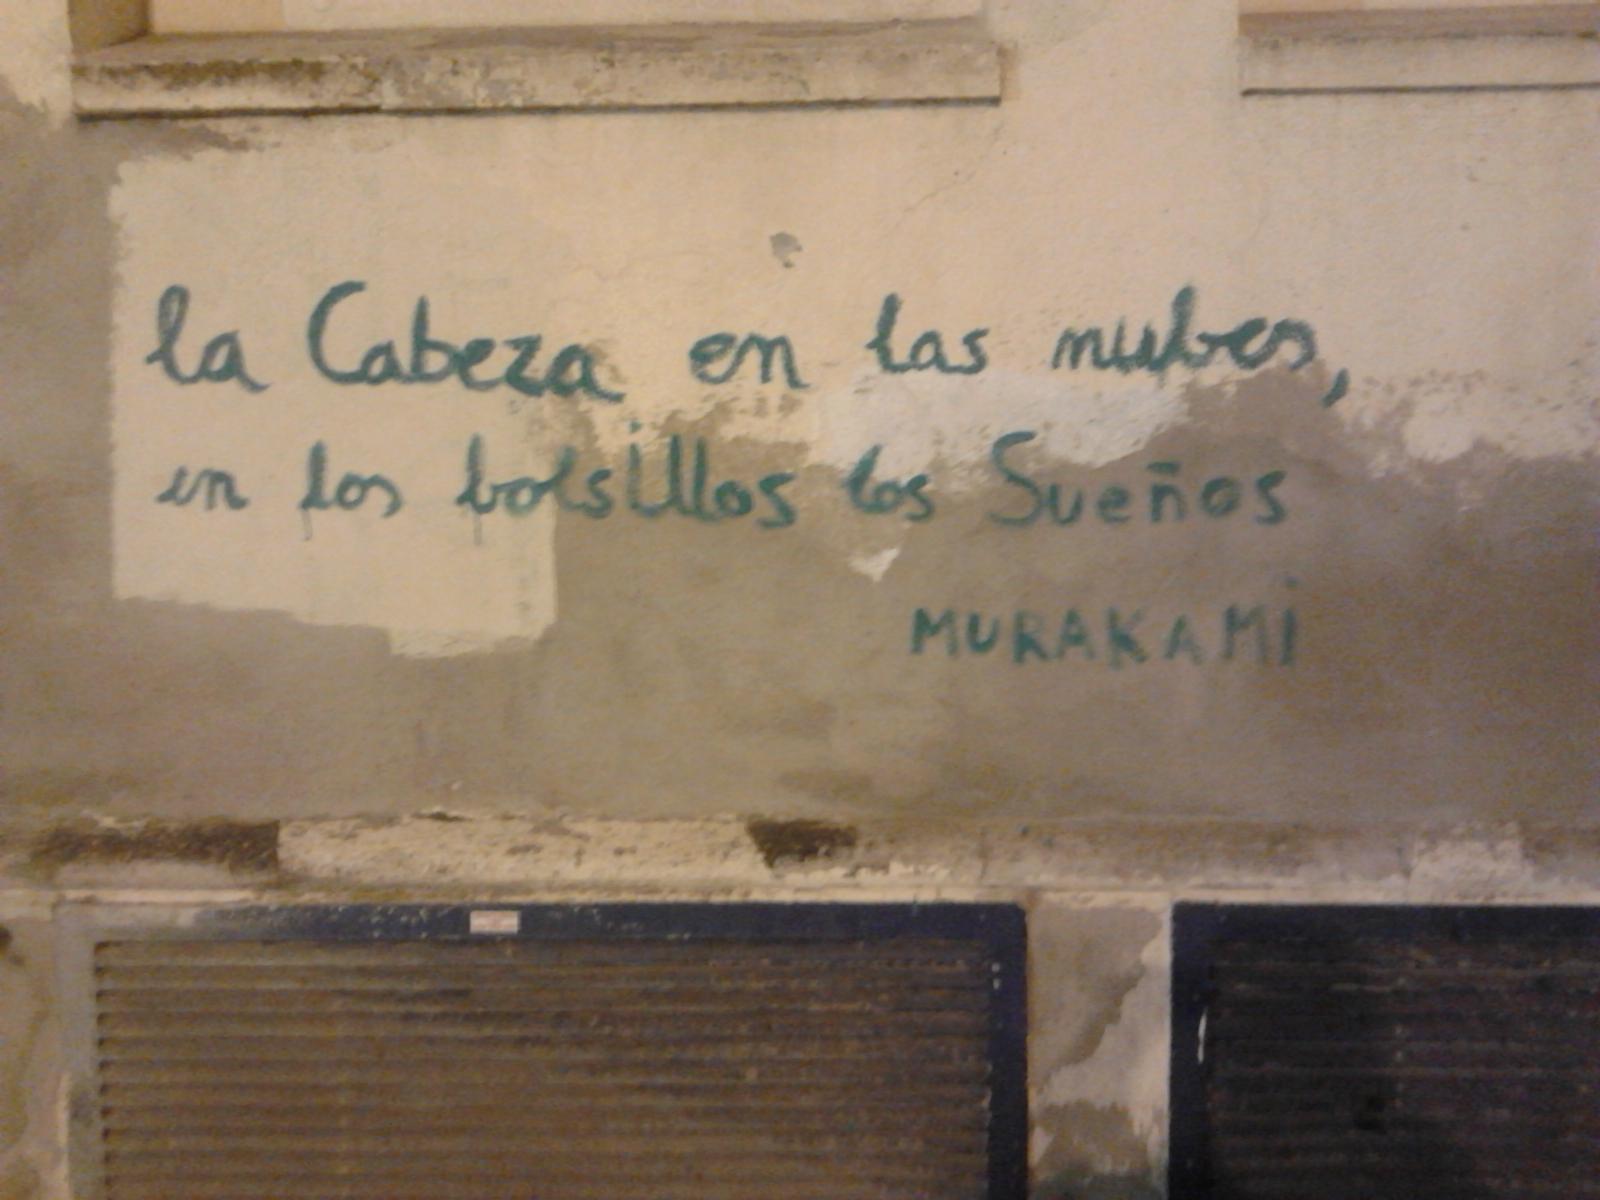 la Cabeza en las nubes,
en los bolsillos los Sueños
MURAKAMi